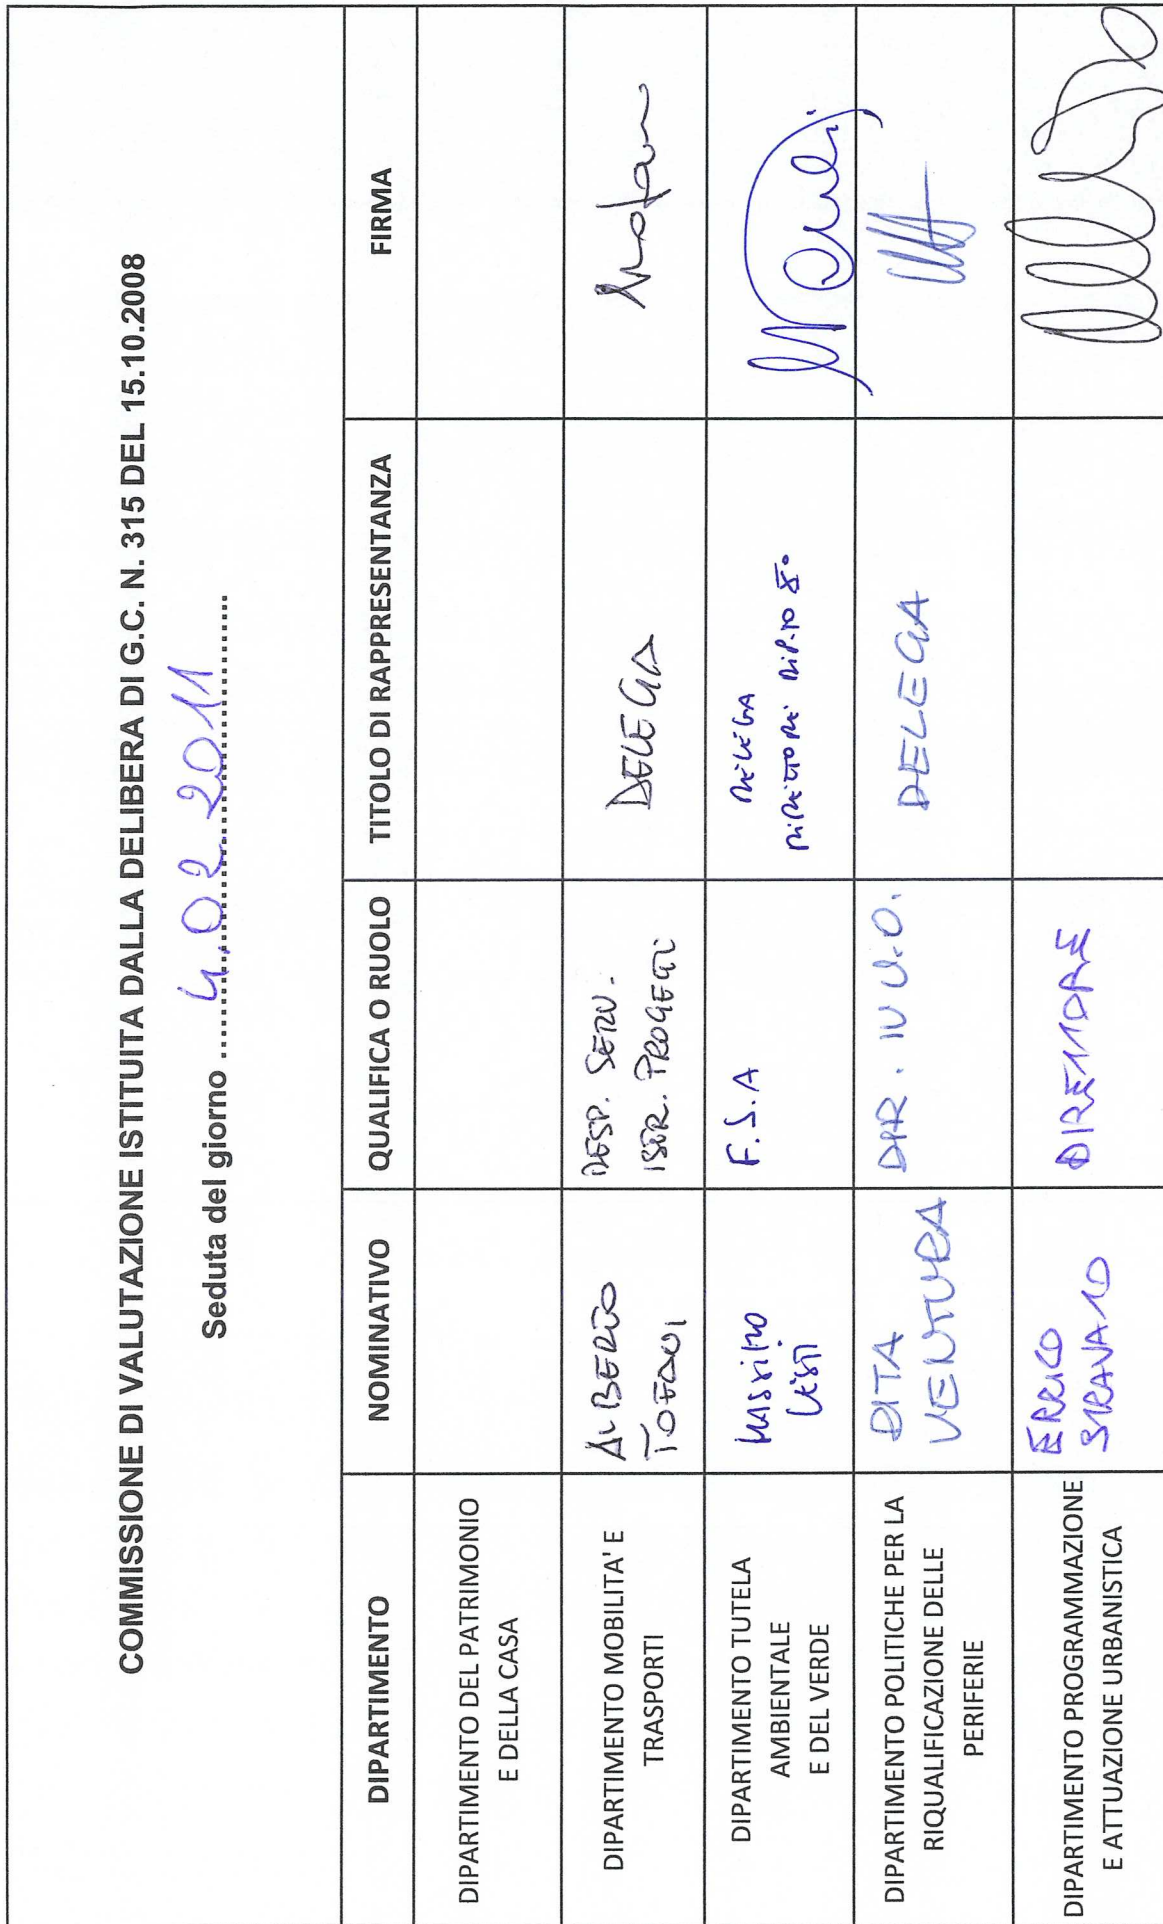 COMMISSIONE DI VALUTAZIONE ISTITUITA DALLA DELIBERA DI G.C. N. 315 DEL 15.10.2008
Seduta del giorno ......4.02.2011......
DIPARTIMENTO NOMINATIVO QUALIFICA O RUOLO TITOLO DI RAPPRESENTANZA FIRMA
DIPARTIMENTO DEL PATRIMONIO
E DELLA CASA
DIPARTIMENTO MOBILITA' E
TRASPORTI
ALBERTO
RESP. SERV.
ISTR. PROGETTI
DELEGA
DIPARTIMENTO TUTELA
AMBIENTALE
E DEL VERDE
MASSIMO
F.S.A
DELEGA
DIRETTORE DIP.TO
DIPARTIMENTO POLITICHE PER LA
RIQUALIFICAZIONE DELLE
PERIFERIE
RITA
VENTURA
DIR. IV U.O.
DELEGA
DIPARTIMENTO PROGRAMMAZIONE
E ATTUAZIONE URBANISTICA
ERRICO
STRAVATO
DIRETTORE